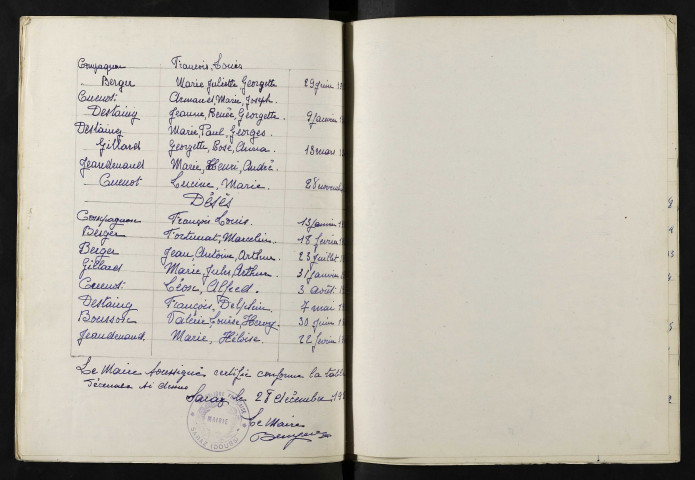 Compagnon François, Louis
Berger Marie Juliette Georgette 29 juin 19
Cuenot Armand, Marie, Joseph.
Destaing Jeanne, Renée, Georgette. 9 janvier 1
Destaing Marie, Paul, Georges.
Gillard Georgette, Rose, Anna. 13 mars 1
Jeandenand Marie, Henri, André.
Cuenot Lucine, Marie. 28 novemb
Décès
Compagnon François Louis. 13 janvier 19
Berger Fortunat, Marcelin. 18 févrie
Berger Jean, Antoine, Arthur. 23 juillet 1
Gillard Marie Jules, Arthur. 31 janvier
Cuenot Léon, Alfred. 3 août 1
Destaing François, Delphin. 7 mai 19
Valérie, Louise, 30 juin 1
Jeandenand Marie, Héloïse. 22 févrie 1
Le Maire soussigné certifie conforme la table
décennale ci dessus
Saraz le 28 décembre 19
Le Maire
MAIRIE
SARAZ (DOUBS)